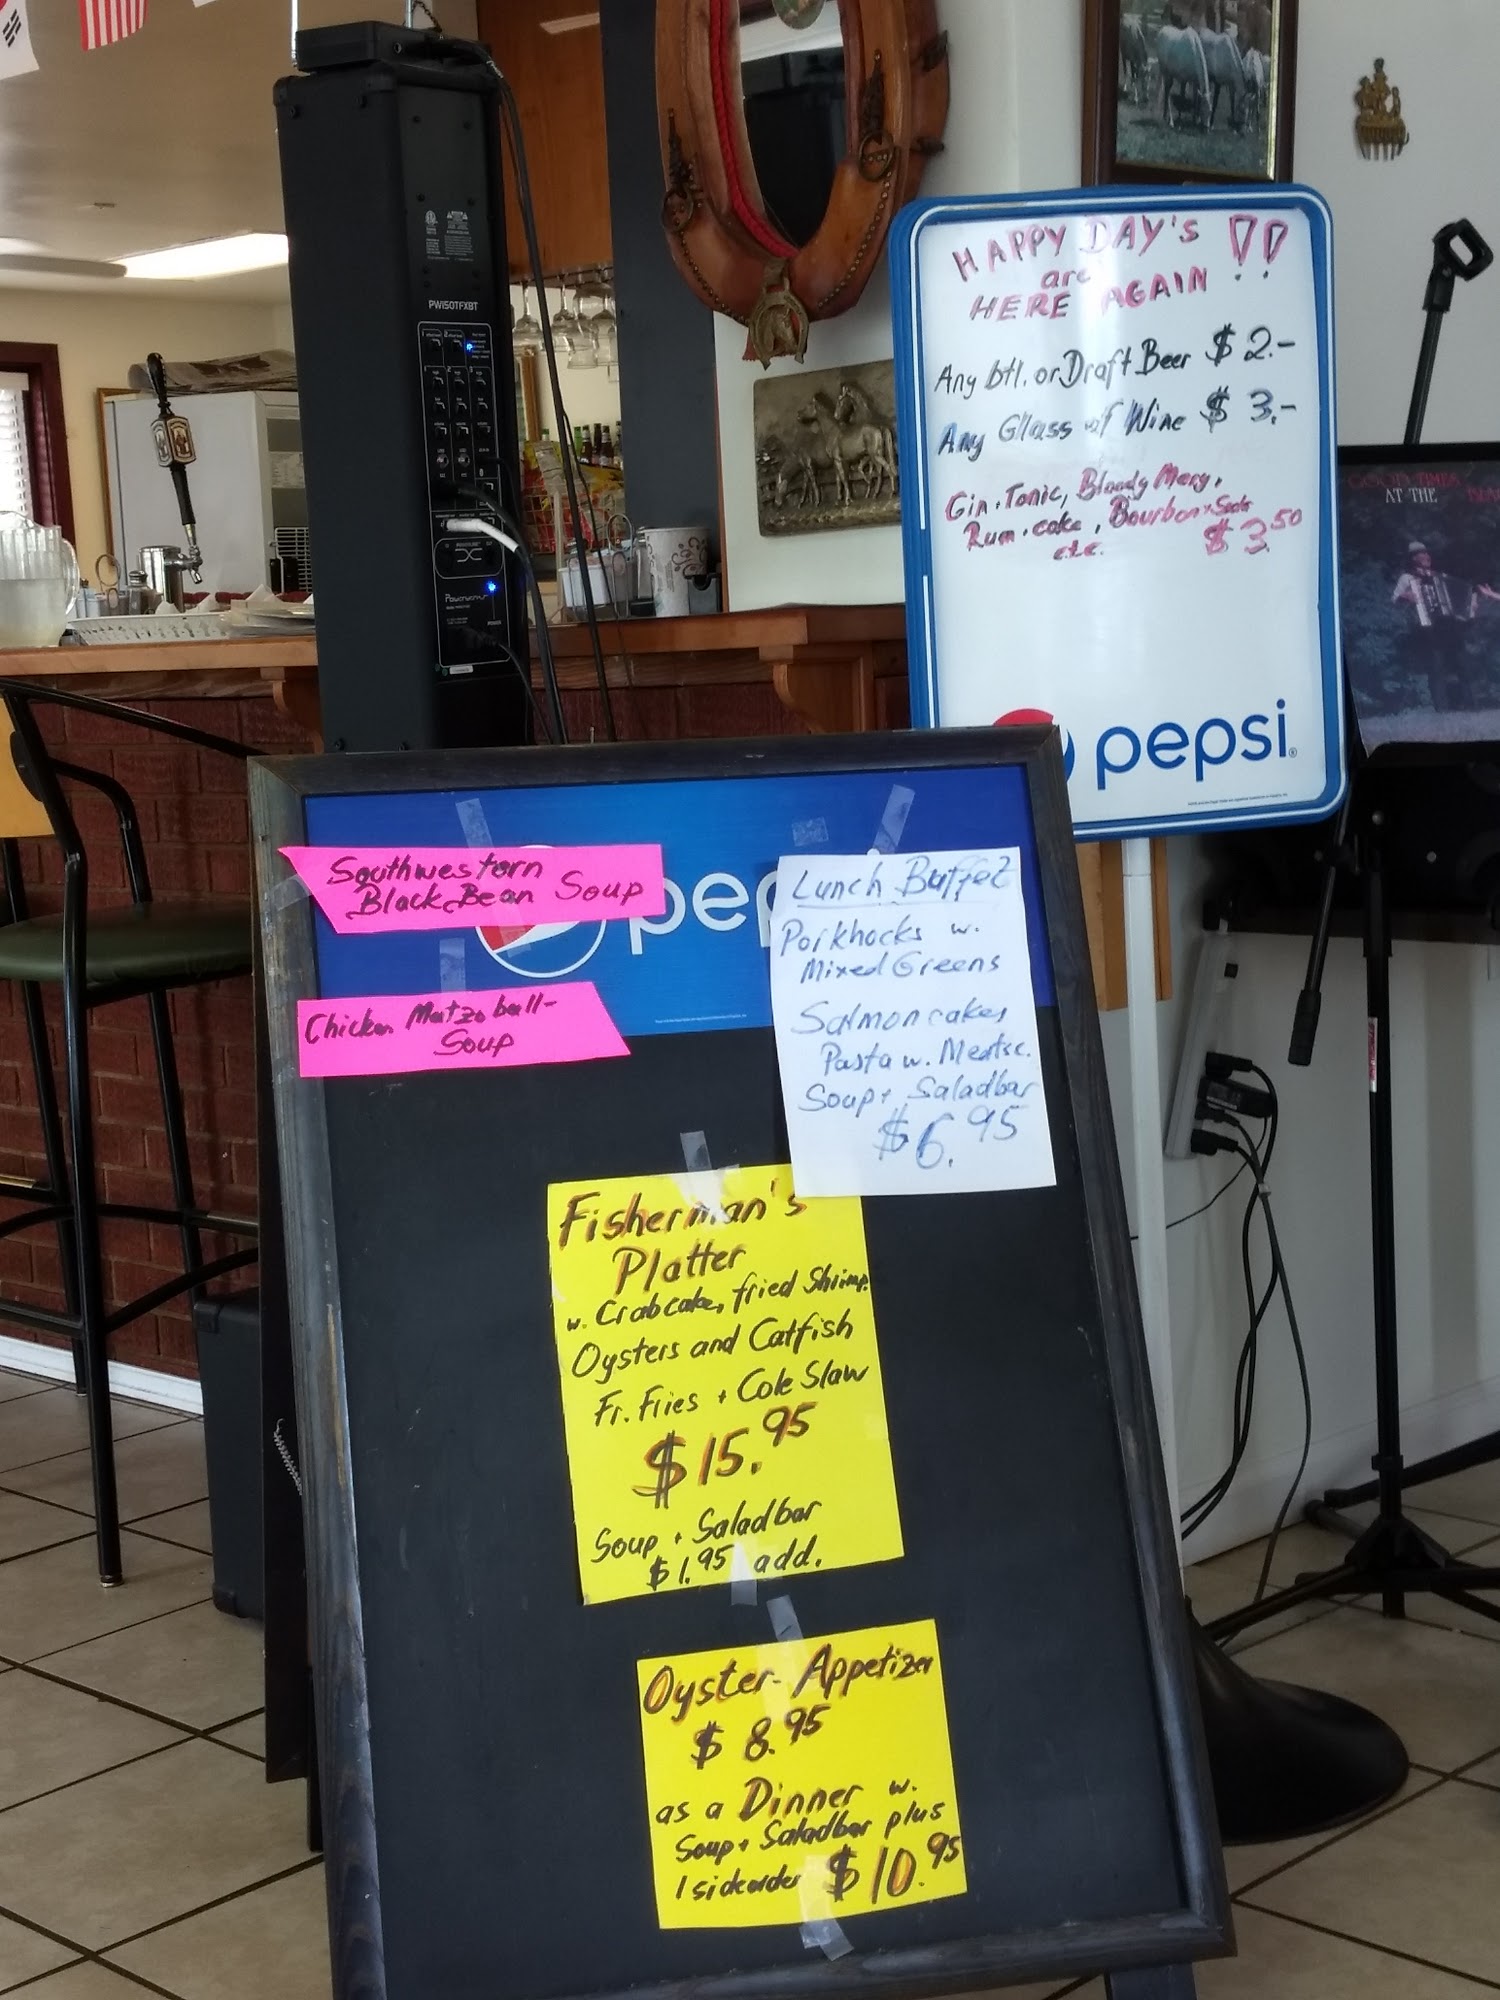 PW150TFXBT
HAPPY DAY'S !!
are
HERE AGAIN
Any btl. or Draft Beer $ 2.-
Any Glass of Wine $ 3.-
Gin + Tonic, Bloody Mary,
Rum + coke, Bourbon + Soda
etc. $ 3.50
pepsi
GOOD TIMES
AT THE
Southwestern
Black Bean Soup
Chicken Matzoball-
Soup
pep
Lunch Buffet
Porkhocks w.
Mixed Greens
Salmoncakes
Pasta w. Meatsc.
Soup + Saladbar
$6.95
Fisherman's
Platter
w. Crabcake, fried Shrimp.
Oysters and Catfish
Fr. Fries + Cole Slaw
$15.95
Soup + Saladbar
$1.95 add.
Oyster-Appetizer
$ 8.95
as a Dinner w.
Soup + Saladbar plus
1 sideorder $10.95